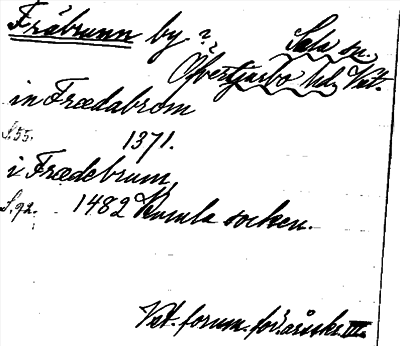 Fröbrunn by ?
Sala sn.
Öfvertjurbo hd, Vst.
in Frœdabrom
S. 55. 1371.
i Frœdebrum,
S. 92. 1482 Kumla socken.
Vst. fornm. för. årsskr. III.